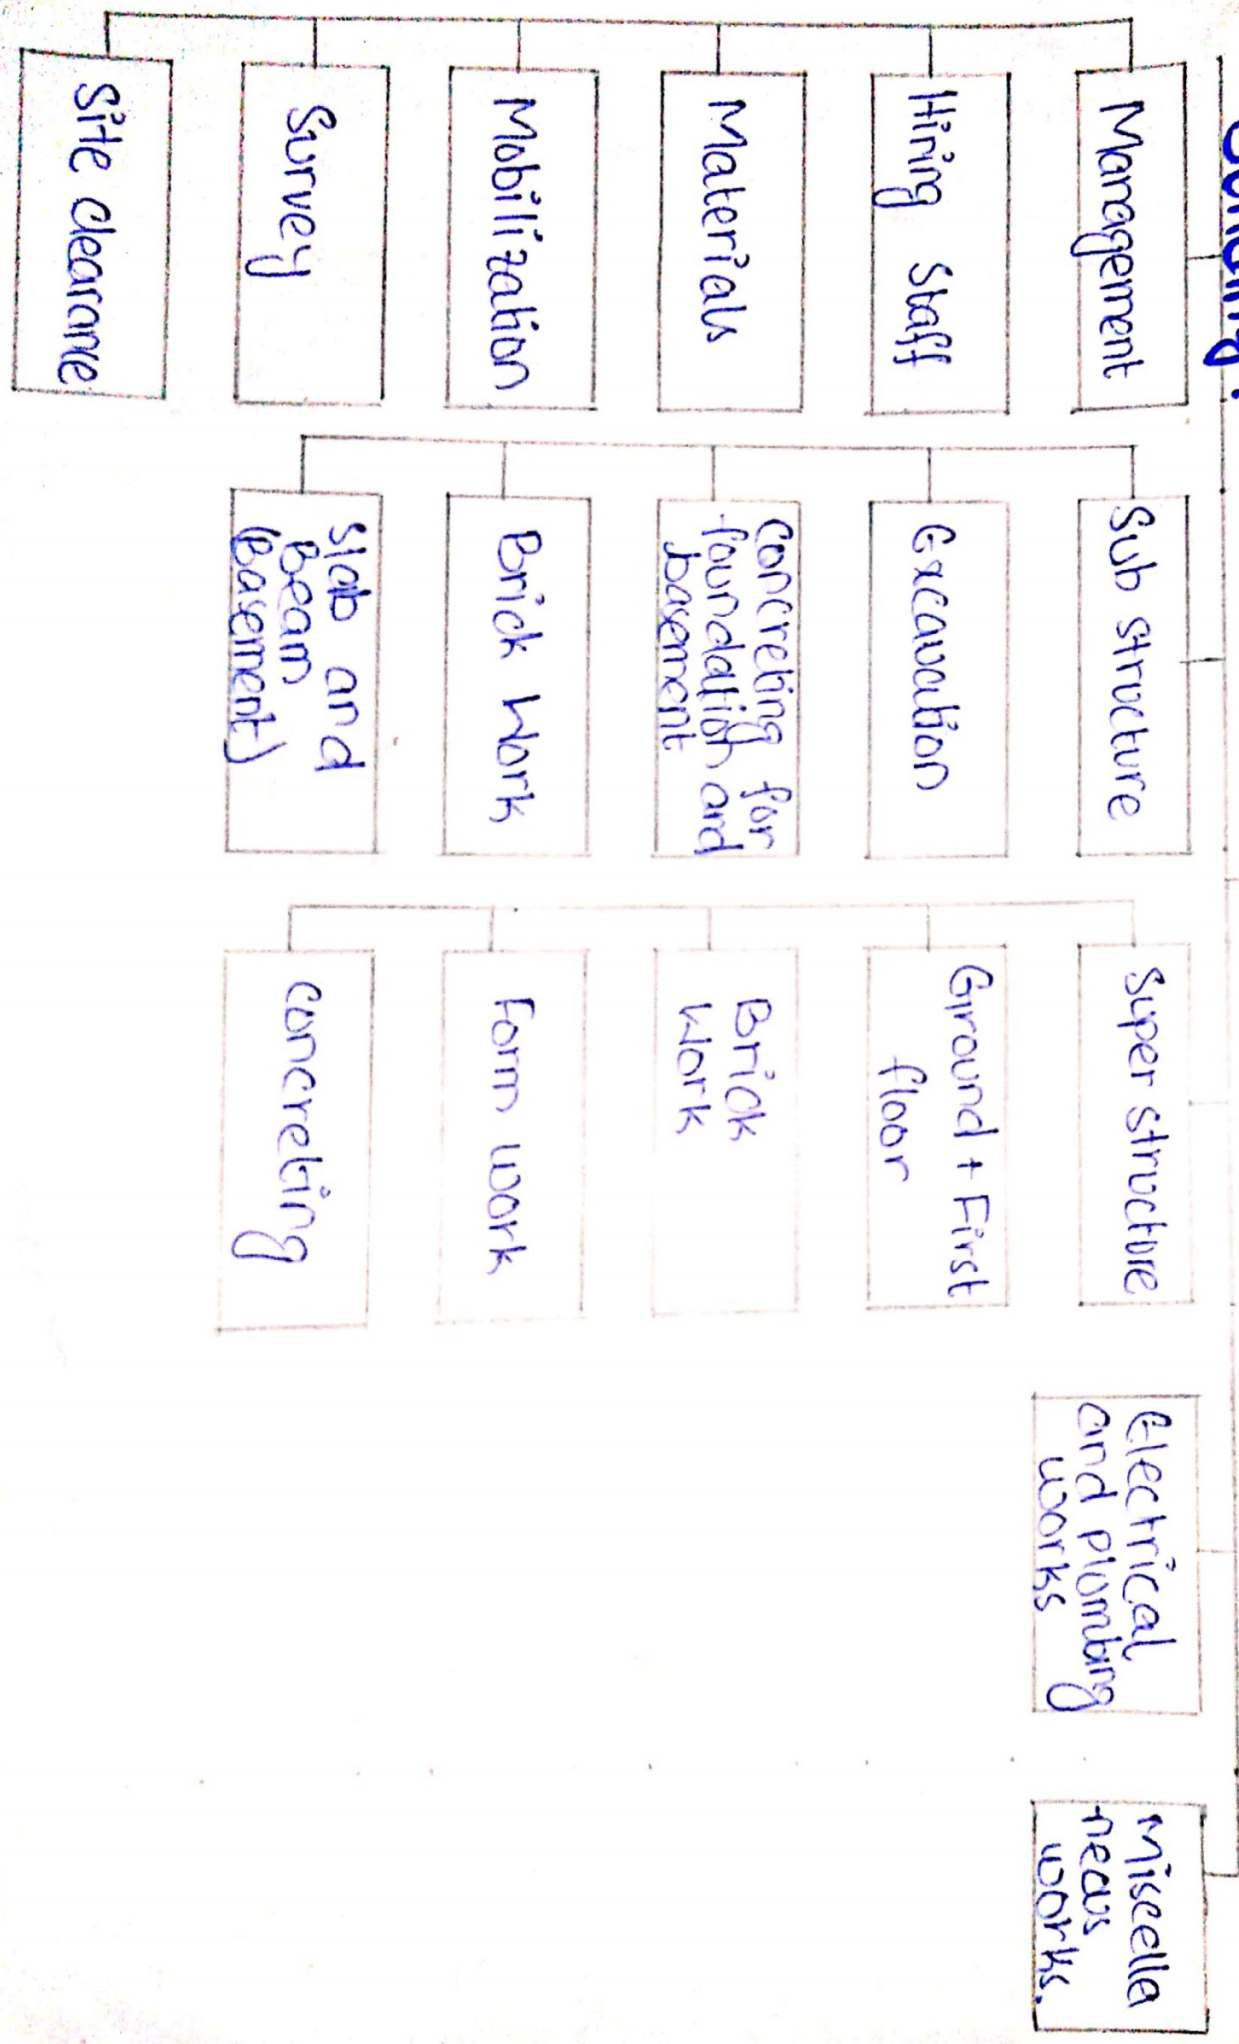 Management
Hiring Staff
Materials
Mobilization
Survey
Site clearance
Sub structure
Excavation
Concreting for
foundation and
basement
Brick Work
Slab and
Beam
(Basement)
Super structure
Ground + First
floor
Brick
Work
Form work
concreting
Electrical
and plumbing
works
Miscella
-neous
works.